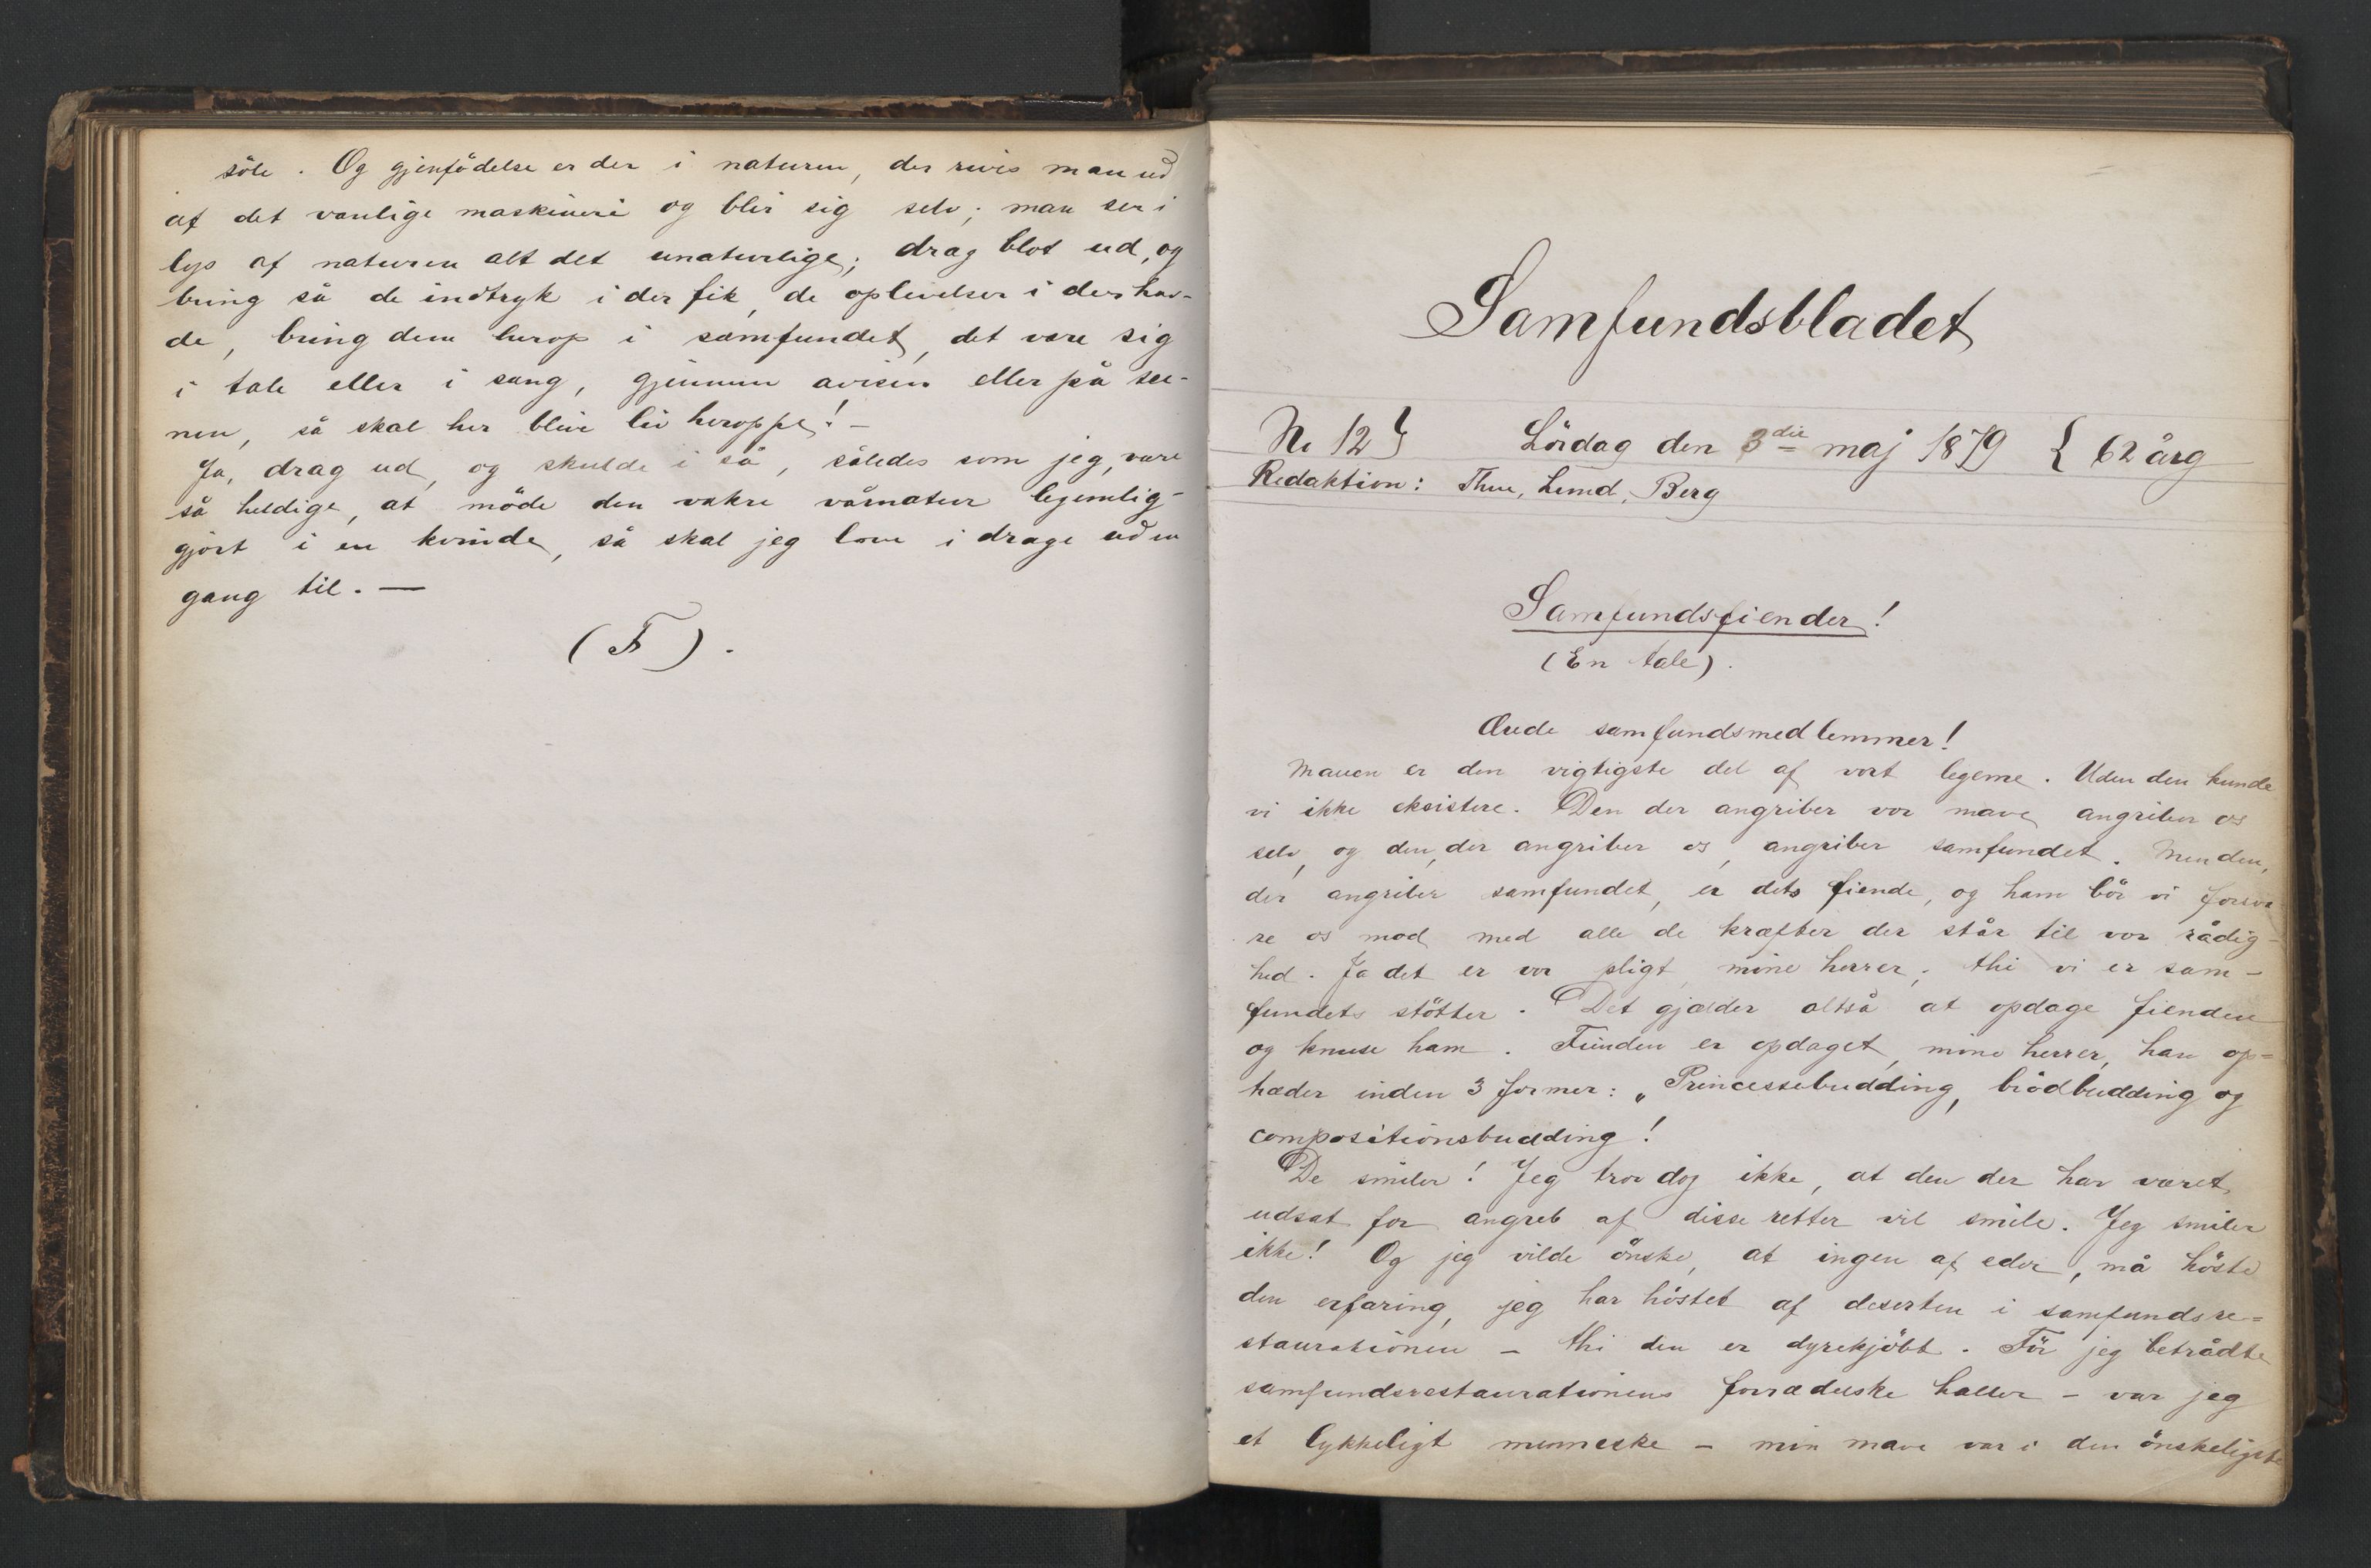 söle. Og gjenfödelse er der i naturen, der rives man ud
af det vanlige maskineri og blir sig selv; man ser i
lys af naturen alt det unaturlige; drag blot ud, og
bring så de indtryk i der fik, de oplevelser i der hav-
de, bring dem herop i samfundet, det være sig
i tale eller i sang, gjennem avisen eller på sce-
nen, så skal her blive liv heroppe! –
Ja, drag ud, og skulde i så, således som jeg, være
så heldige, at möde den vakre vårnatur legemlig-
gjort i en kvinde, så skal jeg love i drage ud en
gang til. —
(F).
Samfundsbladet
No 12} Lördag den 3die maj 1879 { 62 årg
Redaktion: Thue, Lund, Berg
Samfundsfiender!
(En tale).
Ærede samfundsmedlemmer!
Maven er den vigtigste del af vort legeme. Uden den kunde
vi ikke eksistere. Den der angriber vor mave, angriber os
selv, og den, der angriber os, angriber samfundet. Men den,
der angriber samfundet, er dets fiende, og ham bör vi forsva
re os mod med alle de kræfter der står til vor rådig-
hed. Ja det er vor pligt, mine herrer, thi vi er sam-
fundets stötter. Det gjælder altså at opdage fienden
og knuse ham. Fienden er opdaget, mine herrer, han op=
træder inden 3 former: „Princessebudding, brödbudding og
compositionsbudding!
De smiler! Jeg tror dog ikke, at den der har været
udsat for angreb af disse retter vil smile. Jeg smiler
ikke! Og jeg vilde önske, at ingen af eder, må höste
den erfaring, jeg har höstet af deserten i samfundsre=
staurationen – thi den er dyrekjöbt. För jeg betrådte
samfundsrestaurationens forræderske haller – var jeg
et lykkeligt menneske – min mave var i den önskeligste